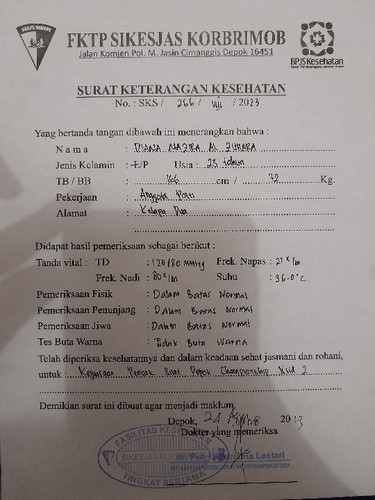 FKTP SIKESJAS KORBRIMOB
Jalan Komjen Pol. M. Jasin Cimanggis Depok 16451
BPJS Kesehatan
SURAT KETERANGAN KESEHATAN
No. : SKS / 266 / VII / 2023
Yang bertanda tangan dibawah ini menerangkan bahwa :
N a m a :
Jenis Kelamin : L/P Usia : 23 tahun
TB / BB : cm / Kg.
Pekerjaan : Anggota Polri
Alamat : Kelapa Dua
Didapat hasil pemeriksaan sebagai berikut :
Tanda vital : TD : 120/80 mmHg Frek. Napas :
Frek. Nadi : 80 x/m Suhu : 36.0°C
Pemeriksaan Fisik : Dalam Batas Normal
Pemeriksaan Penunjang : Dalam Batas Normal
Pemeriksaan Jiwa : Dalam Batas Normal
Tes Buta Warna : Tidak Buta Warna
Telah diperiksa kesehatannya dan dalam keadaan sehat jasmani dan rohani,
untuk : Kejuaraan Pencak Silat Championship 2
Demikian surat ini dibuat agar menjadi maklum.
Depok, 2023
Dokter yang memeriksa
FASILITAS KESEHATAN
SIKESJAS
TINGKAT PERTAMA
Lestari